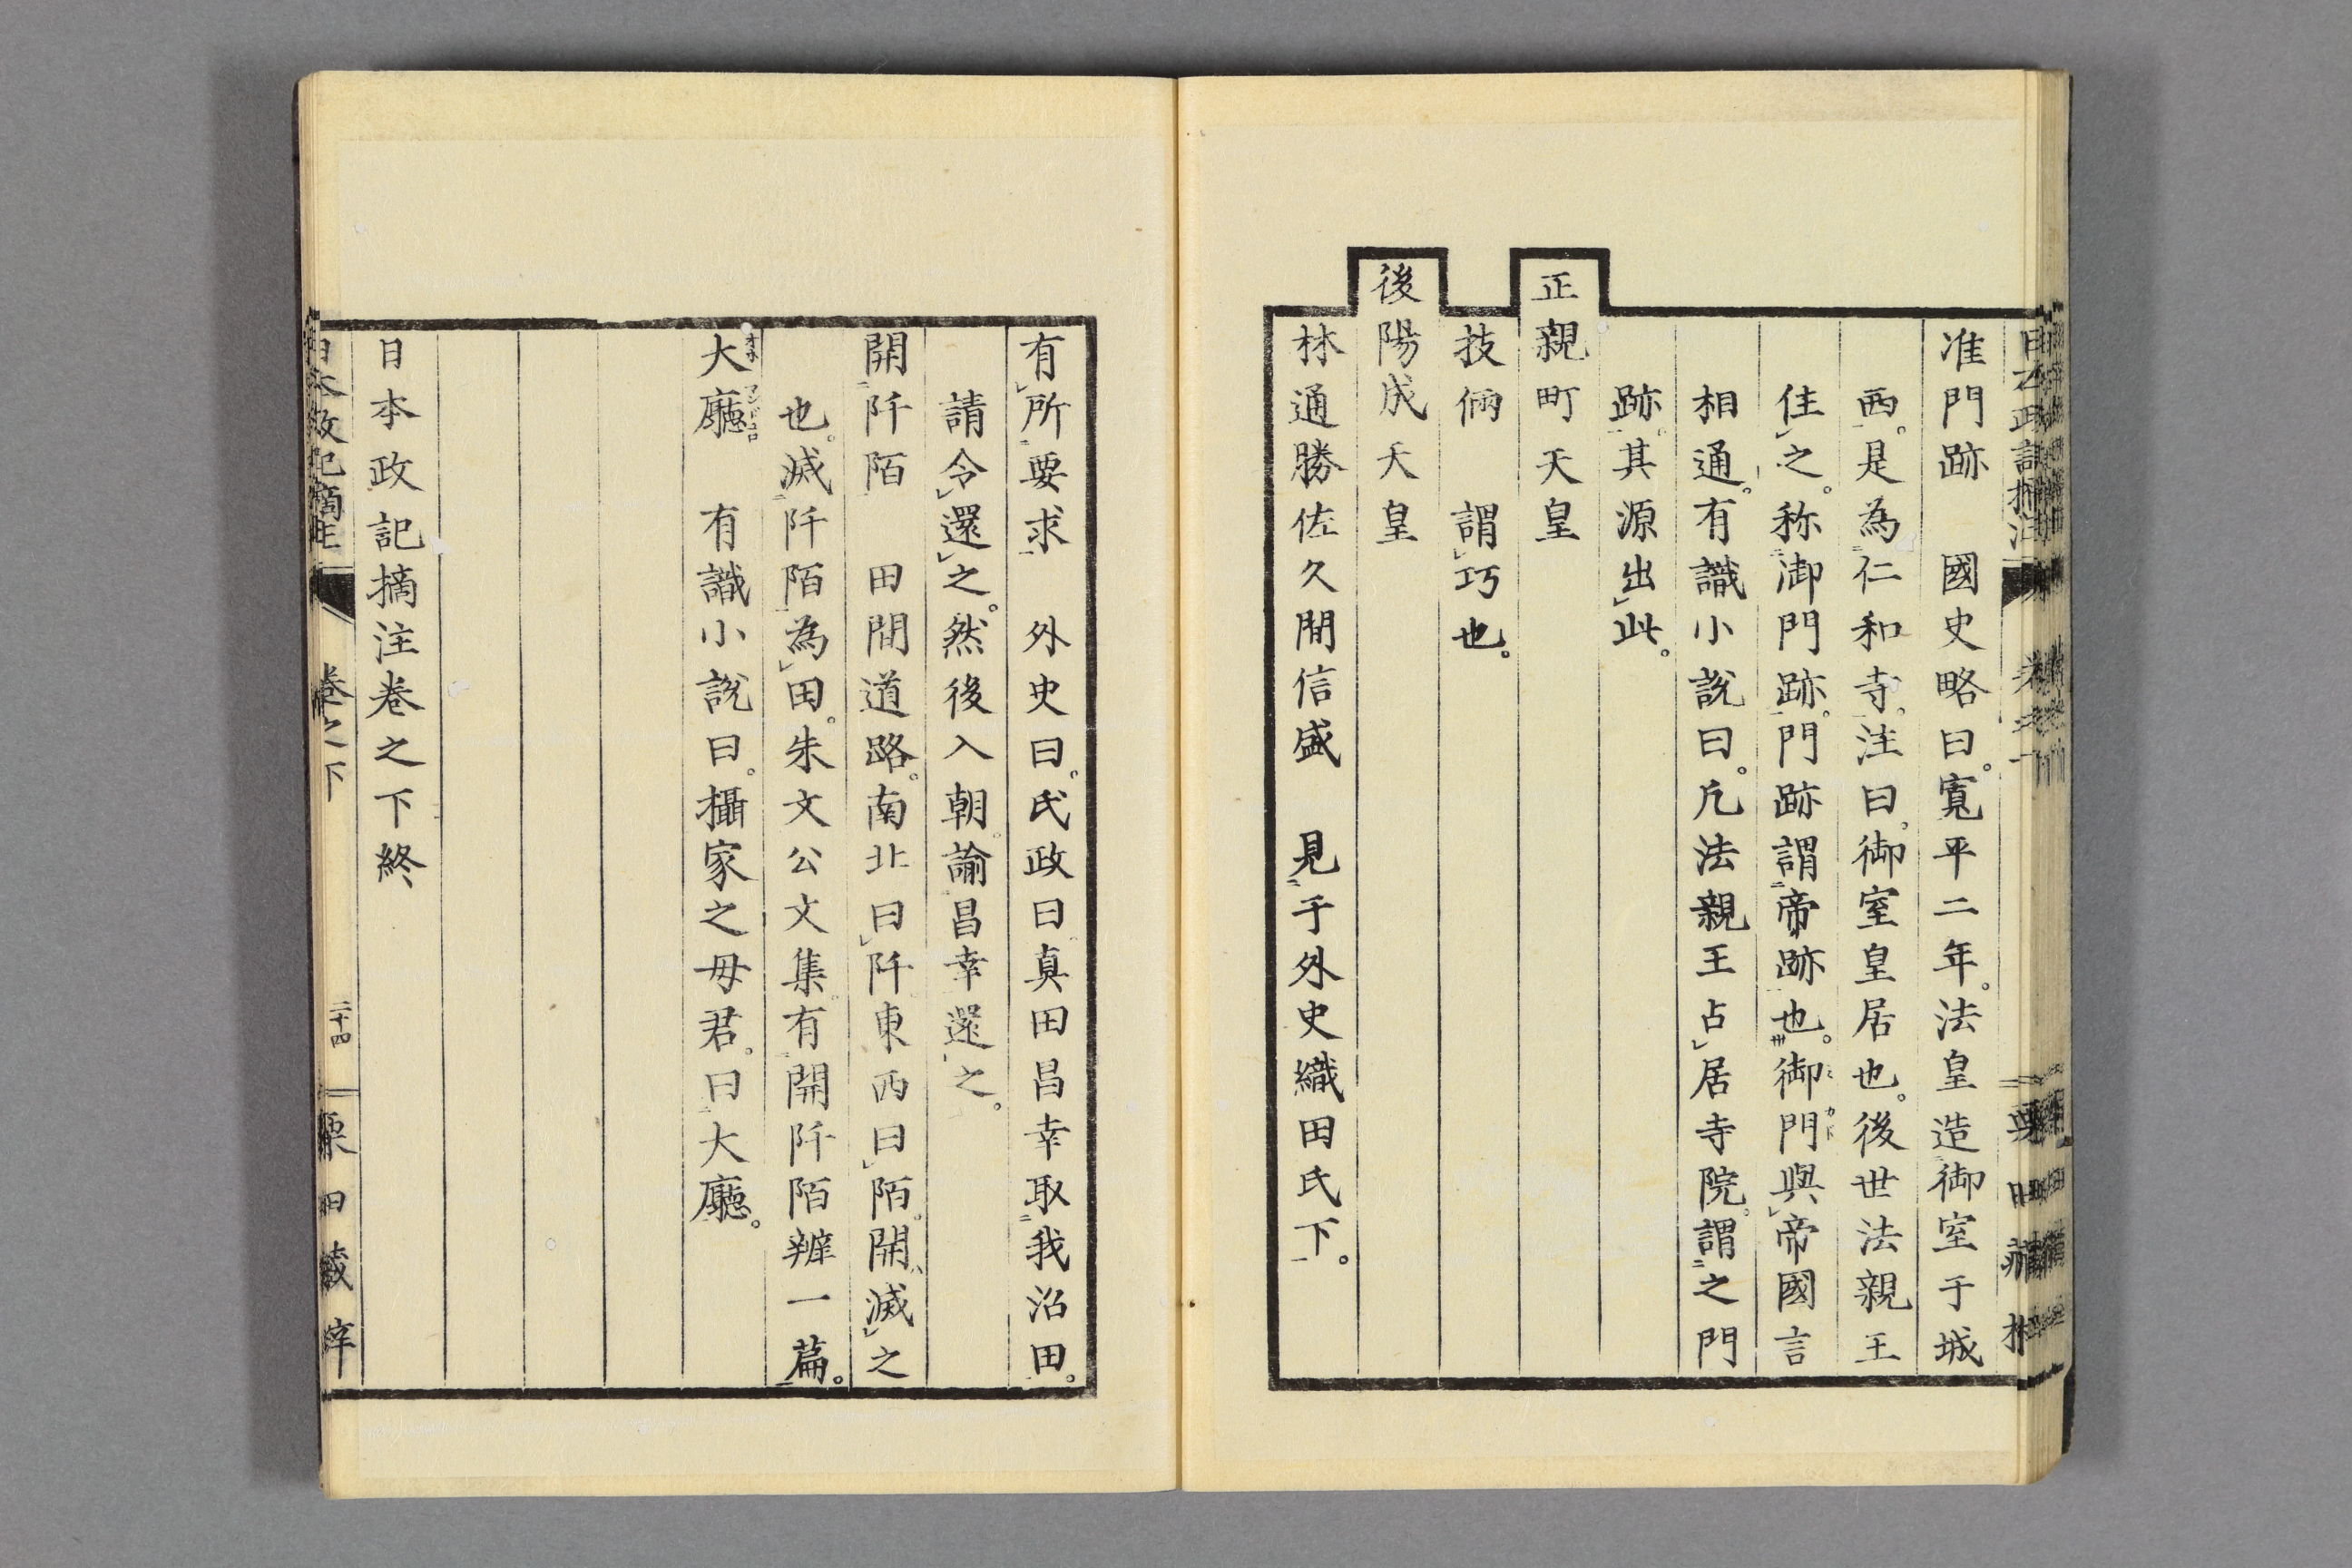 准門跡　國史略曰。寛平二年。法皇造御室于城
西。是為仁和寺。注曰。御室皇居也。後世法親王
住之。称御門跡。門跡謂帝跡也。御門與帝國言
相通。有識小說曰。凡法親王占居寺院。謂之門
跡。其源出此。
正親町天皇
技倆　謂巧也。
後陽成天皇
林通勝佐久間信盛　見于外史織田氏下。
有所要求　外史曰。氏政曰真田昌幸取我沼田。
請令還之。然後入朝。諭昌幸還之。
開阡陌　田間道路。南北曰阡東西曰陌。開、滅之
也。滅阡陌為田。朱文公文集有開阡陌辨一篇。
大廳　有識小說曰。攝家之母君。曰大廳。
日本政記摘注卷之下終
日本政記摘注　卷之下　二十四